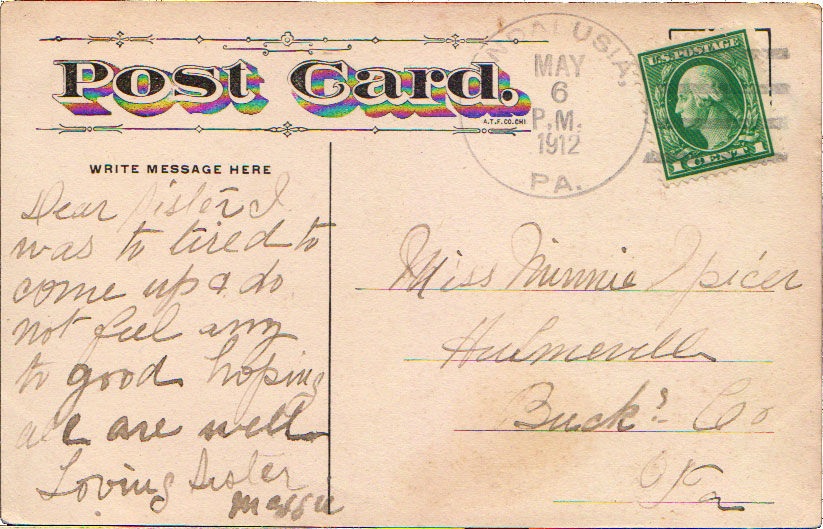 Post Card.
A.T.F.CO.CHI
WRITE MESSAGE HERE
NDALUSIA,
MAY
6
P.M.
1912
PA.
U.S. POSTAGE
1 CENT 1
Dear Sister I
was to tired to
come up & do
not feel any
to good hoping
all are well
Loving Sister
Maggie
Miss Minnie Spicer
Hulmeville
Buck's Co
Pa